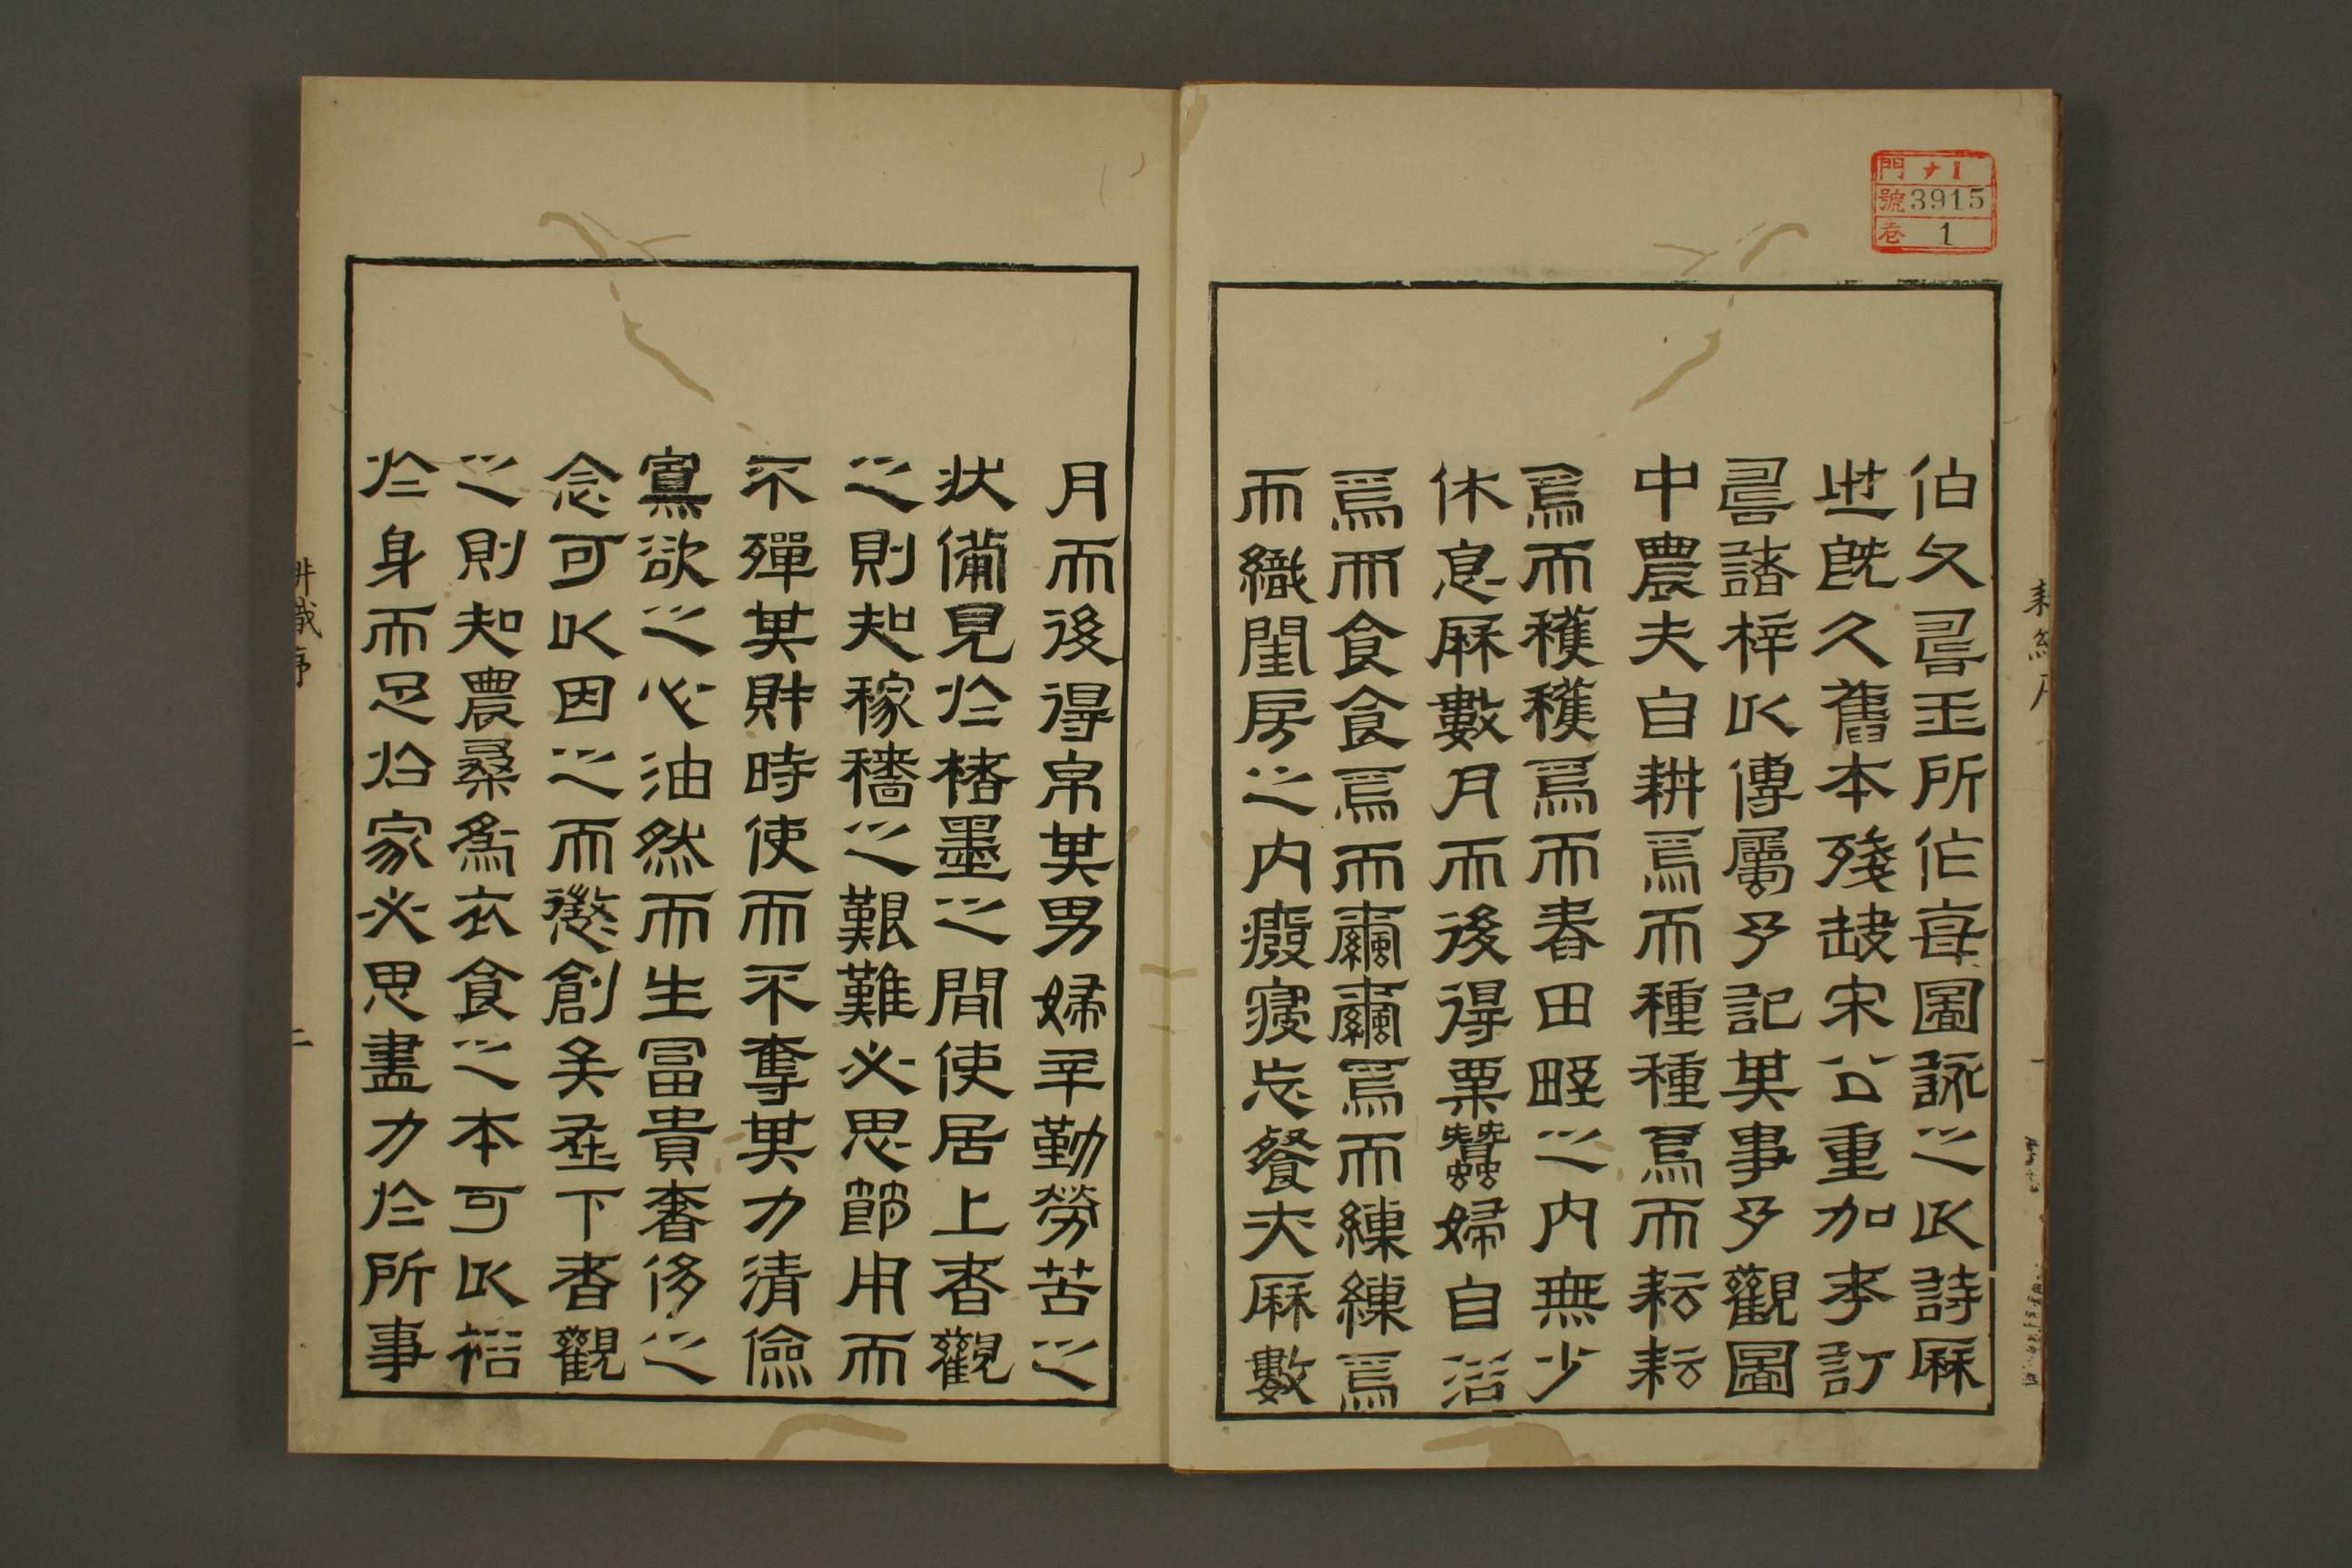 伯父壽玉所作每圖詠之以詩歷
世既久舊本殘缺宋公重加考訂
壽諸梓以傳屬予記其事予觀圖
中農夫自耕焉而種種焉而耘耘
焉而穫穫焉而舂田野之内無少
休息歷數月而後得粟蠶婦自浴
焉而食食焉而繭繭焉而練練焉
而織閨房之内癈寢忘餐夫歷數
月而後得帛其男婦辛勤勞苦之
狀備見於楮墨之間使居上者觀
之則知稼穡之艱難必思節用而
不殫其財時使而不奪其力清儉
寡欲之心油然而生富貴奢侈之
念可以因之而懲創矣在下者觀
之則知農桑爲衣食之本可以裕
於身而足於家必思盡力於所事
門 十1
號 3915
卷 1
耕織序
一
耕織序
二